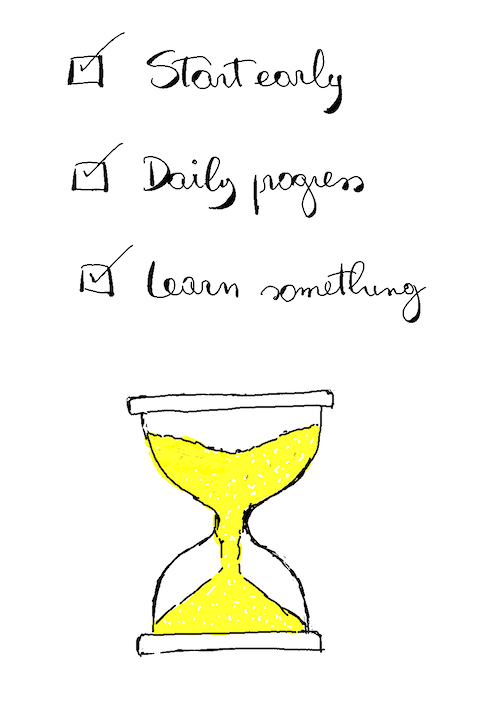 Start early
Daily progress
Learn something